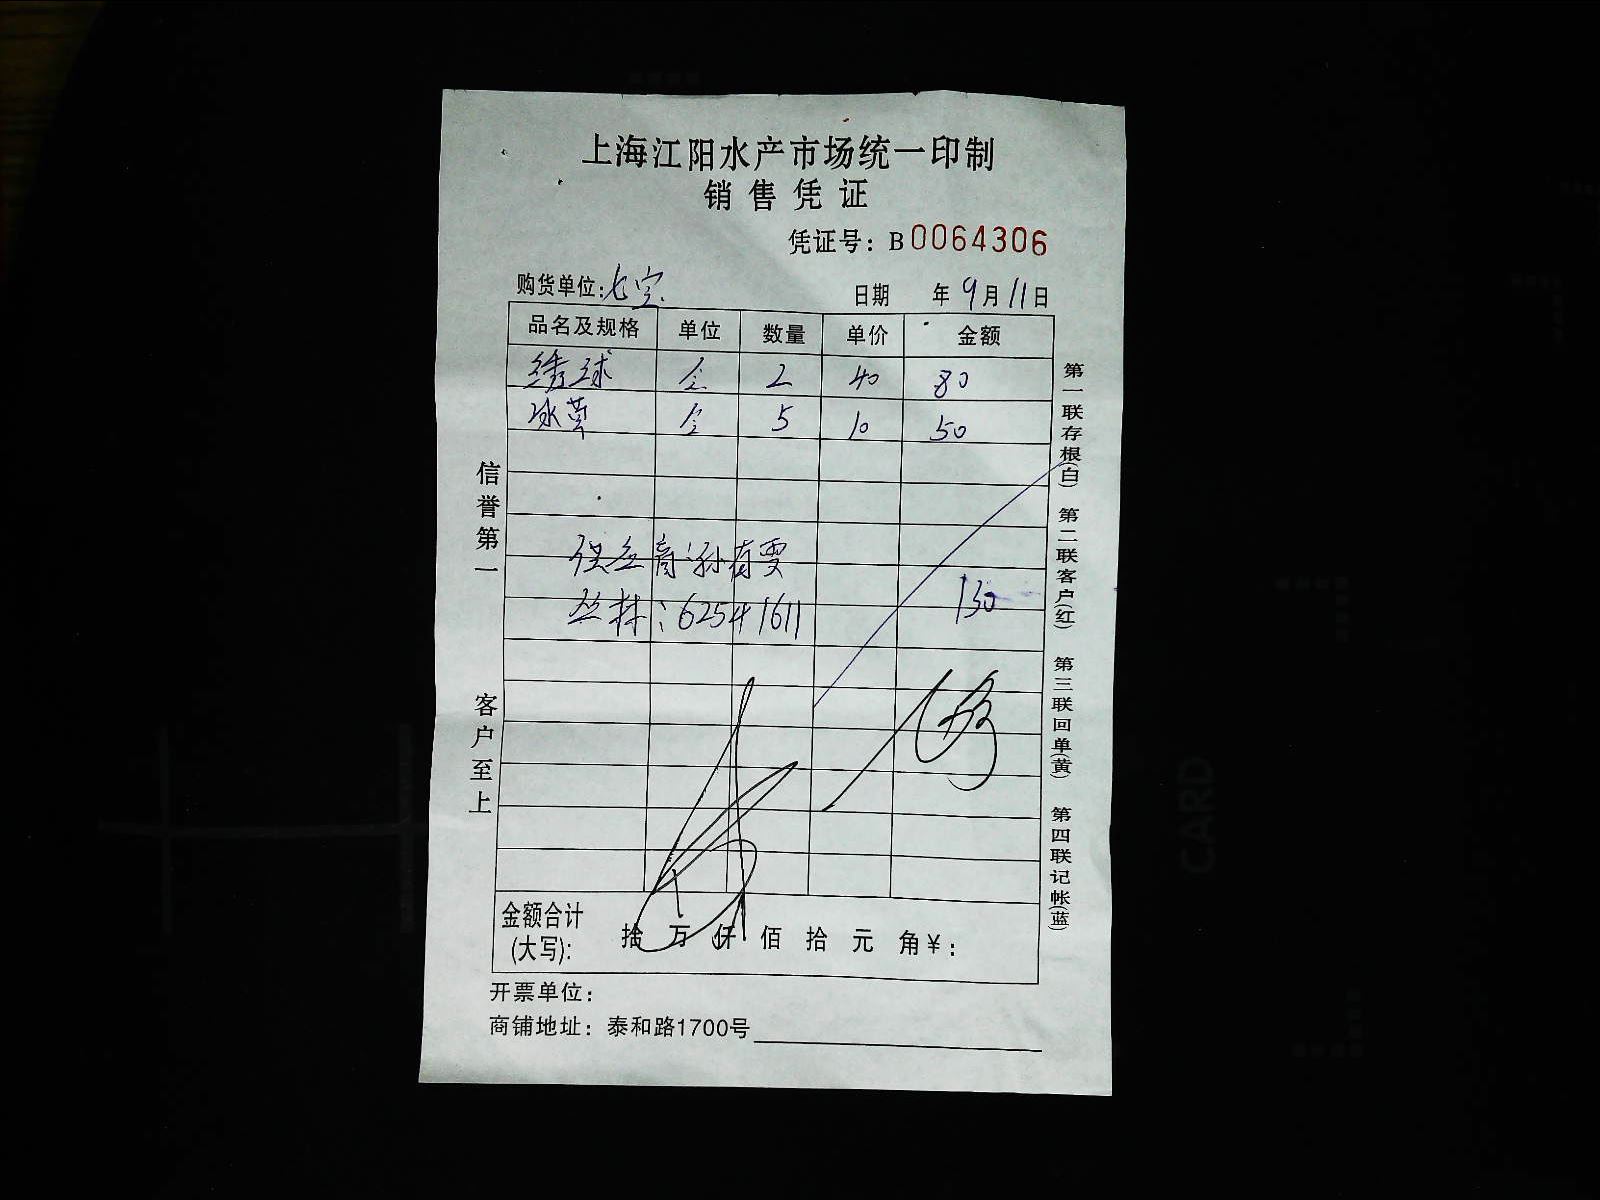 上海江阳水产市场统一印制
销售凭证
凭证号：B0064306
购货单位：七宝
日期 年9月11日
品名及规格 单位 数量 单价 金额
绣球 2 40 80
冰草 5 10 50
供应商：孙有雯
130
：62541611
金额合计(大写)： 拾 万 仟 佰 拾 元 角￥：
开票单位：
商铺地址：泰和路1700号
信誉第一
客户至上
第一联存根(白) 第二联客户(红) 第三联回单(黄) 第四联记帐(蓝)
CARD